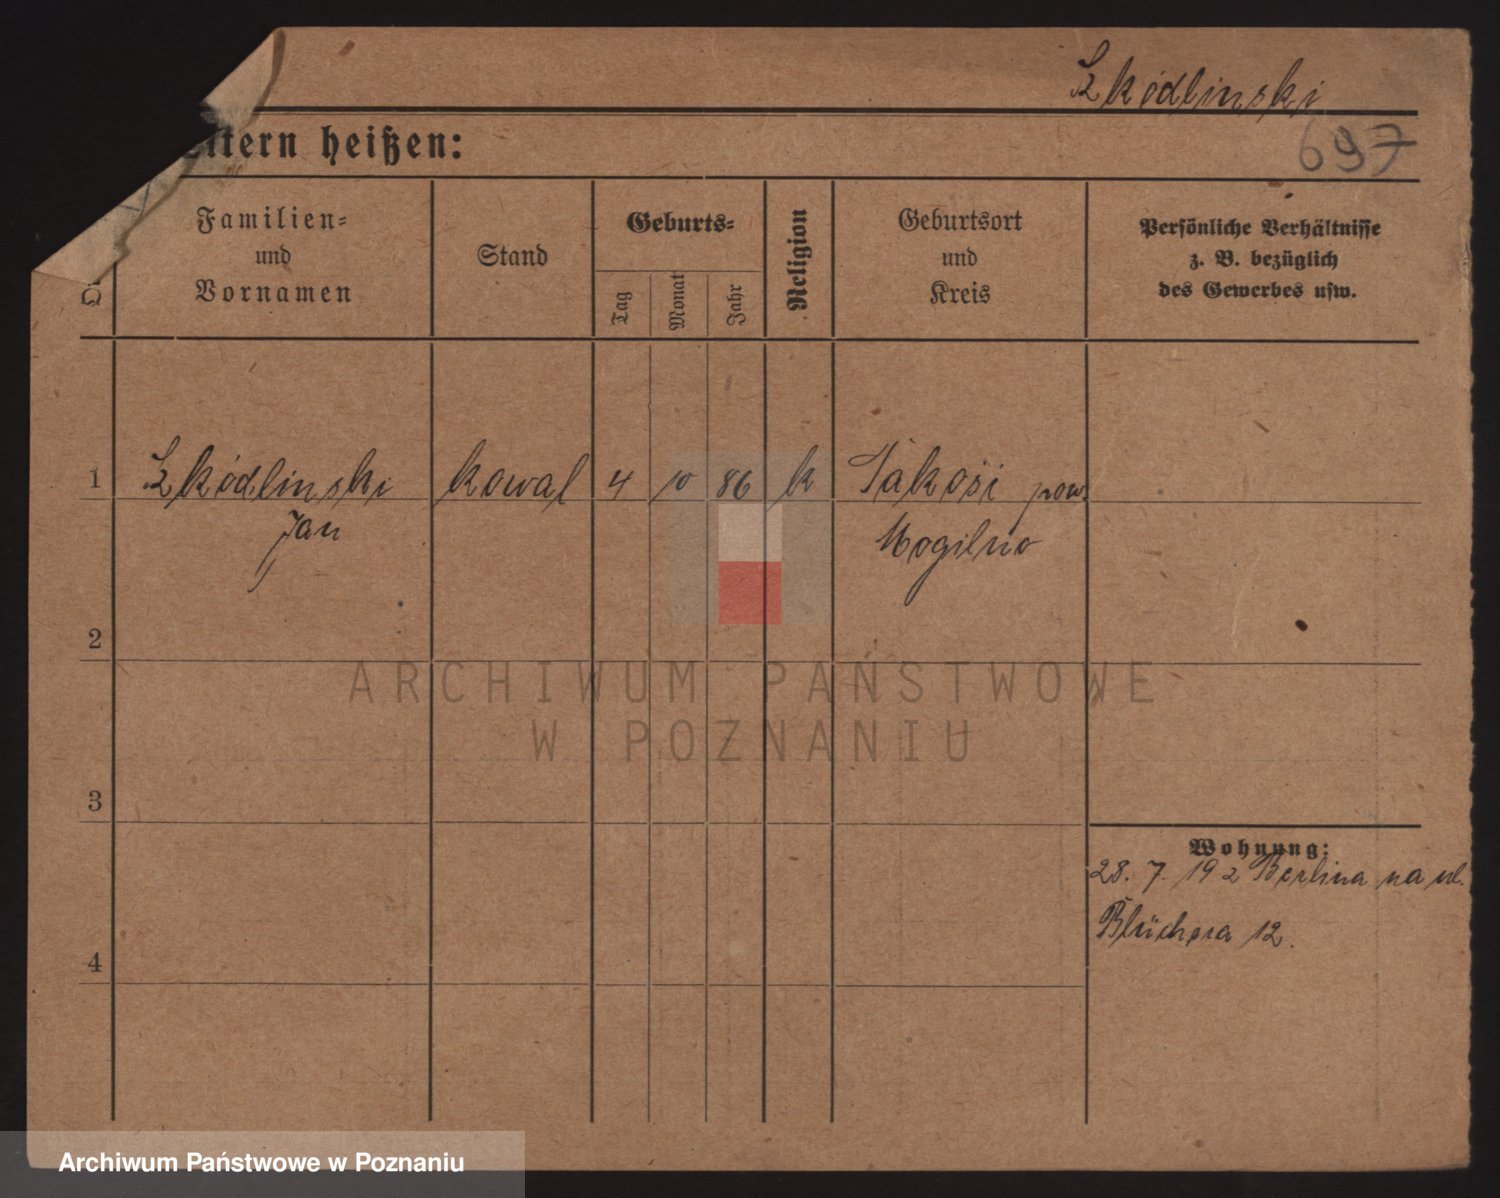 Szkódlinski
Eltern heißen:
697
Familien=
und
Vornamen
Stand
Geburts=
Tag
Monat
Jahr
Religion
Geburtsort
und
Kreis
Persönliche Verhältnisse
z. B. bezüglich
des Gewerbes usw.
1 Szkódlinski kowal 4 10 86 k pow.
Jan Mogilno
2
3
4
Wohnung:
28. 7. 19 z Berlina na ul.
Blüchera 12.
ARCHIWUM PAŃSTWOWE
W POZNANIU
Archiwum Państwowe w Poznaniu